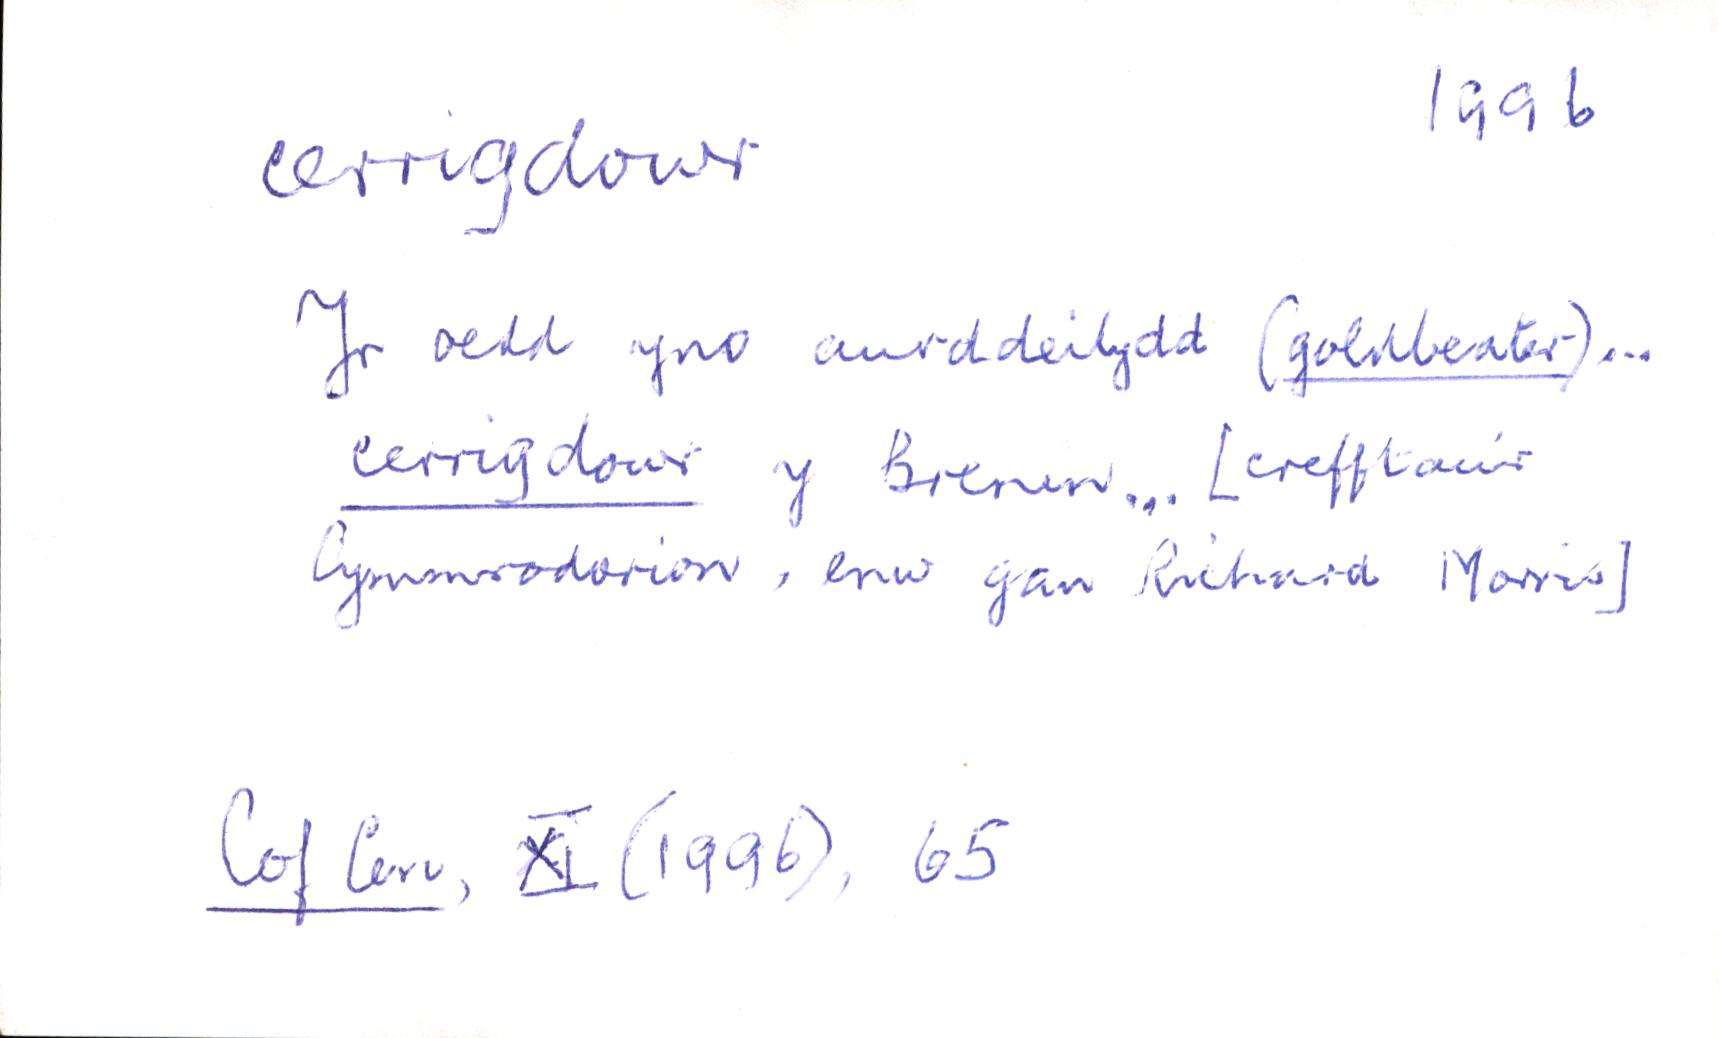 1996
cerrigdowr
Yr oedd yno aurddeilydd (goldbeater)...
cerrigdowr y Brenin... [crefftwir
Cymmrodorion, enw gan Richard Morris]
Cof Cen, XI (1996), 65